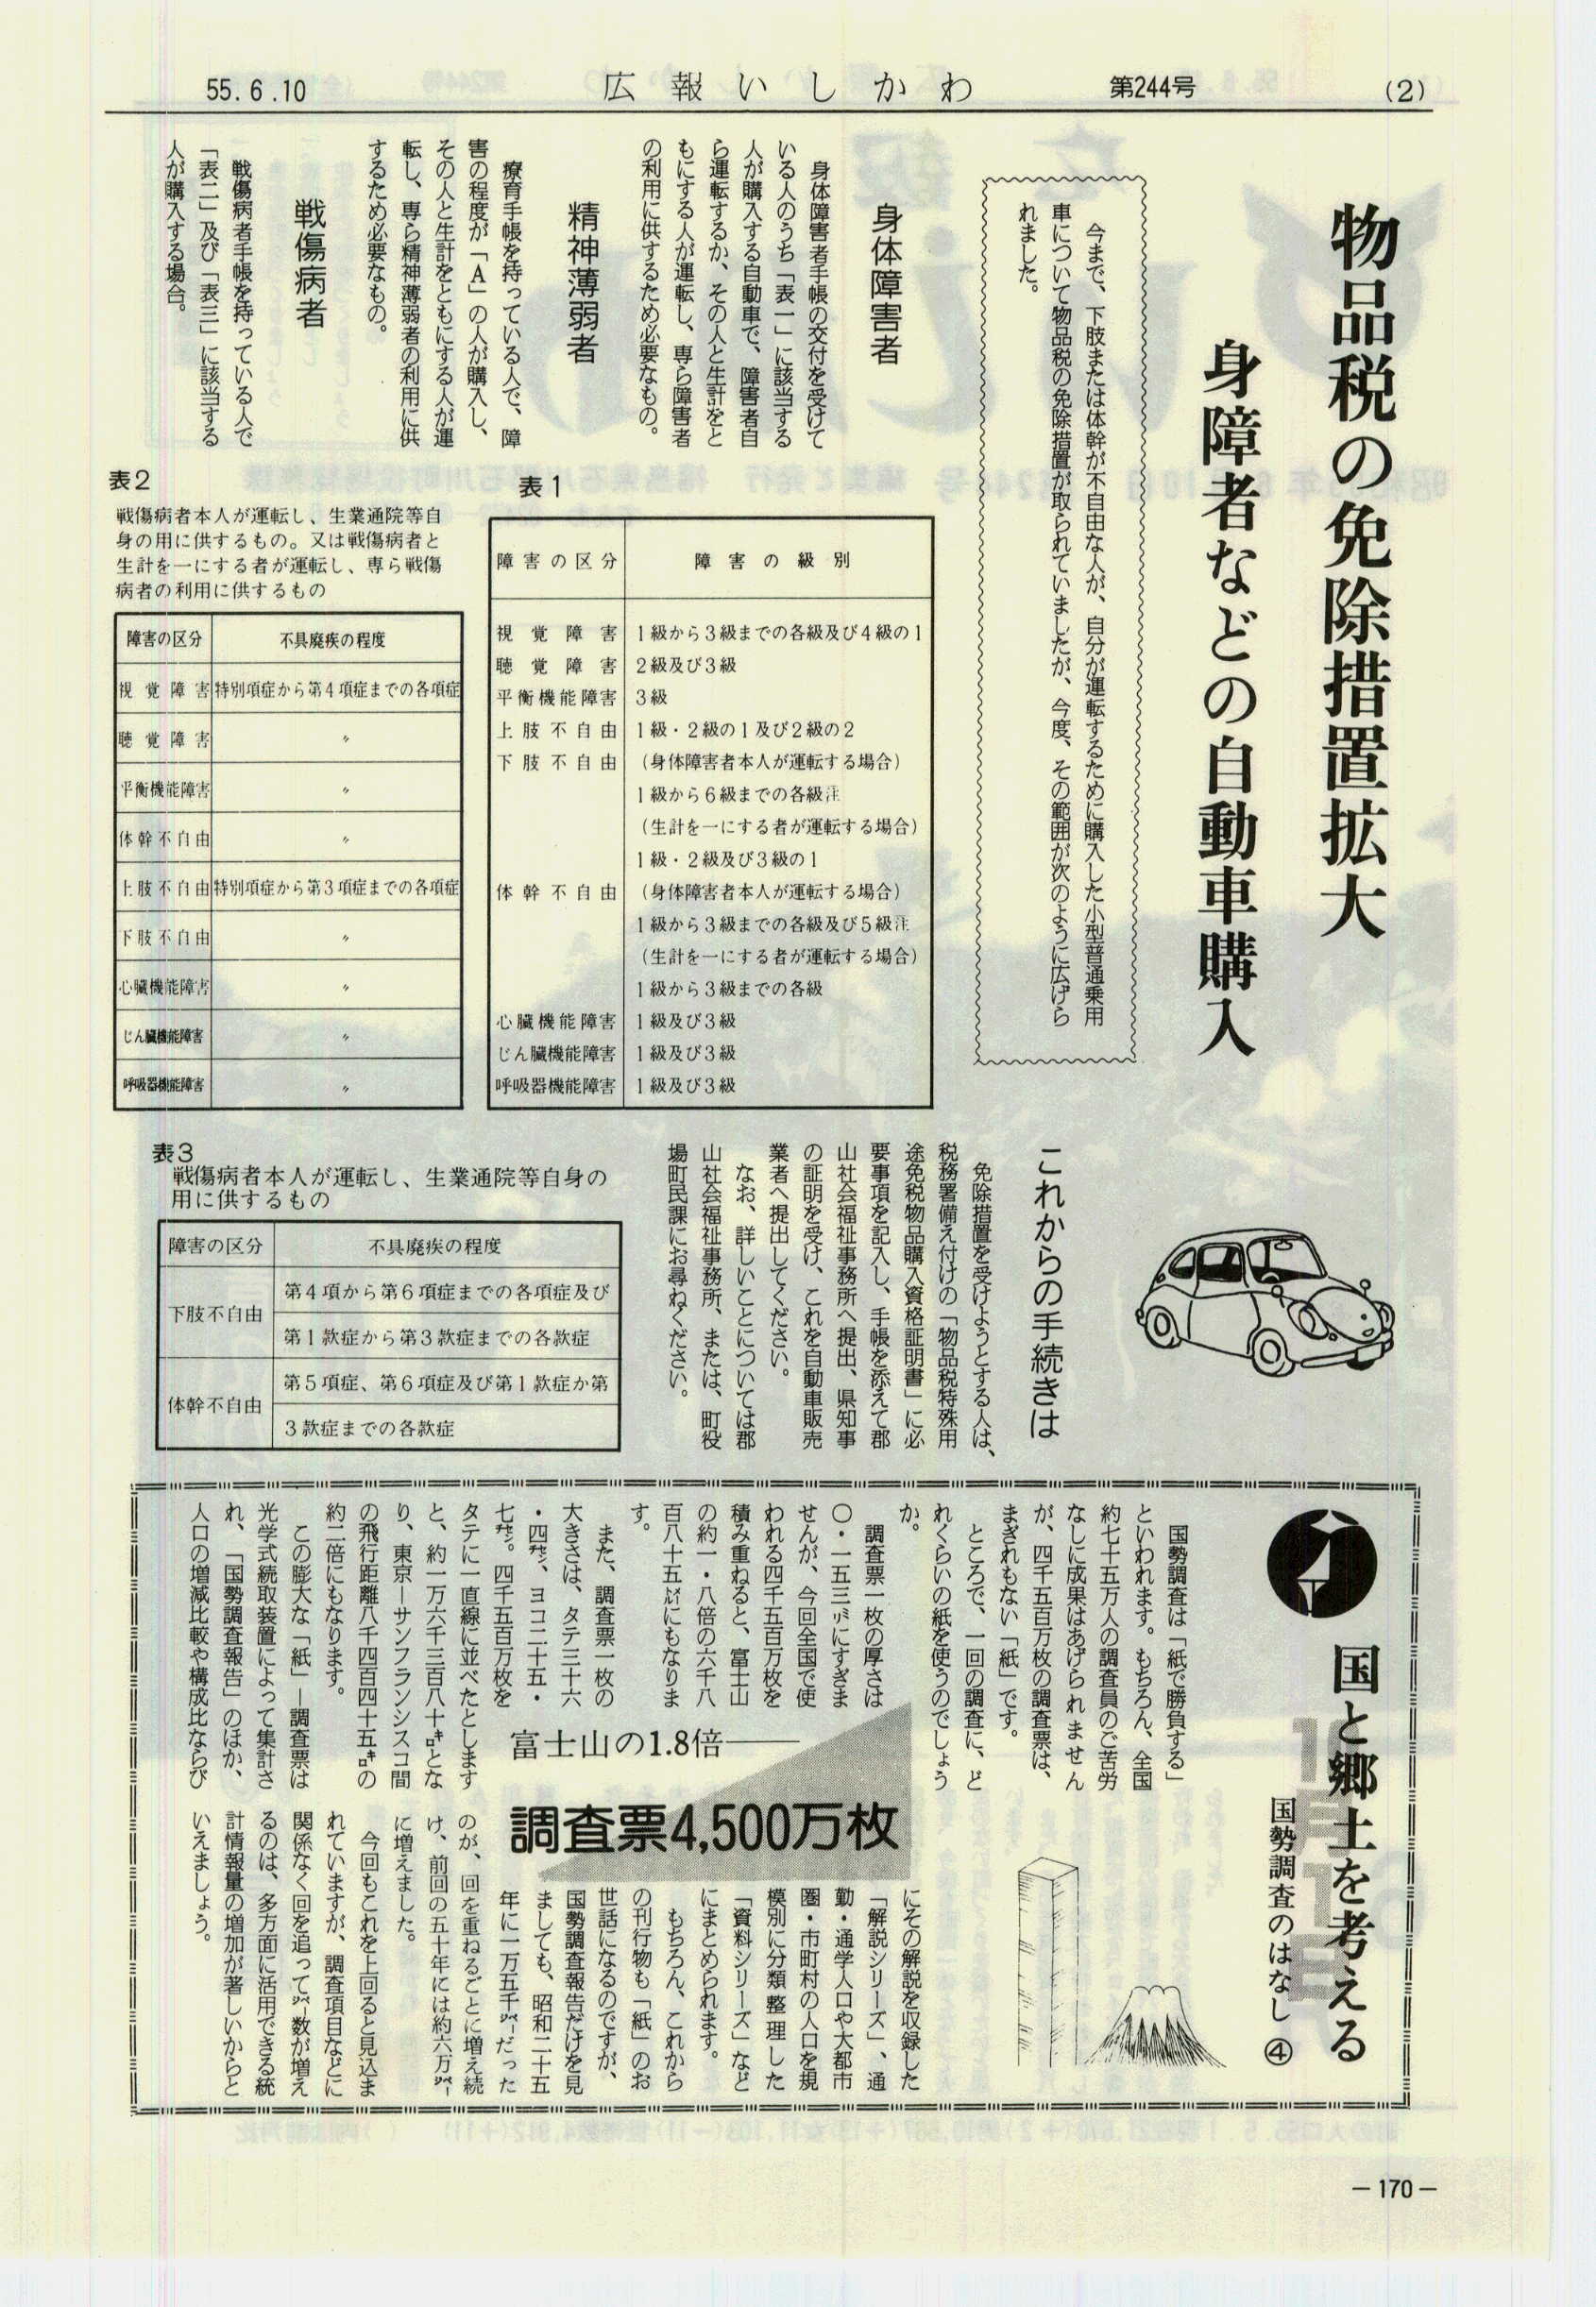 55.6.10
広報いしかわ
第244号
(2)
物品税の免除措置拡大
身障者などの自動車購入
今まで、下肢または体幹が不自由な人が、自分が運転するために購入した小型普通乗用
車について物品税の免除措置が取られていましたが、今度、その範囲が次のように広げら
れました。
身体障害者
身体障害者手帳の交付を受けて
いる人のうち「表一」に該当する
人が購入する自動車で、障害者自
ら運転するか、その人と生計をと
もにする人が運転し、専ら障害者
の利用に供するため必要なもの。
精神薄弱者
療育手帳を持っている人で、障
害の程度が「A」の人が購入し、
その人と生計をともにする人が運
転し、専ら精神薄弱者の利用に供
するため必要なもの。
戦傷病者
戦傷病者手帳を持っている人で
「表二」及び「表三」に該当する
人が購入する場合。
表1
障害の区分 障害の級別
視覚障害 1級から3級までの各級及び4級の1
聴覚障害 2級及び3級
平衡機能障害 3級
上肢不自由 1級・2級の1及び2級の2
下肢不自由 (身体障害者本人が運転する場合)
1級から6級までの各級注
(生計を一にする者が運転する場合)
1級・2級及び3級の1
体幹不自由 (身体障害者本人が運転する場合)
1級から3級までの各級及び5級注
(生計を一にする者が運転する場合)
1級から3級までの各級
心臓機能障害 1級及び3級
じん臓機能障害 1級及び3級
呼吸器機能障害 1級及び3級
表2
戦傷病者本人が運転し、生業通院等自
身の用に供するもの。又は戦傷病者と
生計を一にする者が運転し、専ら戦傷
病者の利用に供するもの
障害の区分 不具廃疾の程度
視覚障害 特別項症から第4項症までの各項症
聴覚障害 〃
平衡機能障害 〃
体幹不自由 〃
上肢不自由 特別項症から第3項症までの各項症
下肢不自由 〃
心臓機能障害 〃
じん臓機能障害 〃
呼吸器機能障害 〃
表3
戦傷病者本人が運転し、生業通院等自身の
用に供するもの
障害の区分 不具廃疾の程度
下肢不自由 第4項から第6項症までの各項症及び
第1款症から第3款症までの各款症
体幹不自由 第5項症、第6項症及び第1款症か第
3款症までの各款症
これからの手続きは
免除措置を受けようとする人は、
税務署備え付けの「物品税特殊用
途免税物品購入資格証明書」に必
要事項を記入し、手帳を添えて郡
山社会福祉事務所へ提出、県知事
の証明を受け、これを自動車販売
業者へ提出してください。
なお、詳しいことについては郡
山社会福祉事務所、または、町役
場町民課にお尋ねください。
国と郷土を考える
10月1日
国勢調査のはなし④
国勢調査は「紙で勝負する」
といわれます。もちろん、全国
約七十五万人の調査員のご苦労
なしに成果はあげられません
が、四千五百万枚の調査票は、
まぎれもない「紙」です。
ところで、一回の調査に、ど
れくらいの紙を使うのでしょう
か。
調査票一枚の厚さは
〇・一五三㍉にすぎま
せんが、今回全国で使
われる四千五百万枚を
積み重ねると、富士山
の約一・八倍の六千八
百八十五㍍にもなりま
す。
また、調査票一枚の
大きさは、タテ三十六
・四㌢、ヨコ二十五・
七㌢。四千五百万枚を
タテに一直線に並べたとします
と、約一万六千三百八十㌔とな
り、東京ーサンフランシスコ間
の飛行距離八千四百四十五㌔の
約二倍にもなります。
この膨大な「紙」ー調査票は
光学式続取装置によって集計さ
れ、「国勢調査報告」のほか、
人口の増減比較や構成比ならび
富士山の1.8倍——
調査票4,500万枚
にその解説を収録した
「解説シリーズ」、通
勤・通学人口や大都市
圏・市町村の人口を規
模別に分類整理した
「資料シリーズ」など
にまとめられます。
もちろん、これから
の刊行物も「紙」のお
世話になるのですが、
国勢調査報告だけを見
ましても、昭和二十五
年に一万五千㌻だった
のが、回を重ねるごとに増え続
け、前回の五十年には約六万㌻
に増えました。
今回もこれを上回ると見込ま
れていますが、調査項目などに
関係なく回を追って㌻数が増え
るのは、多方面に活用できる統
計情報量の増加が著しいからと
いえましょう。
－170－